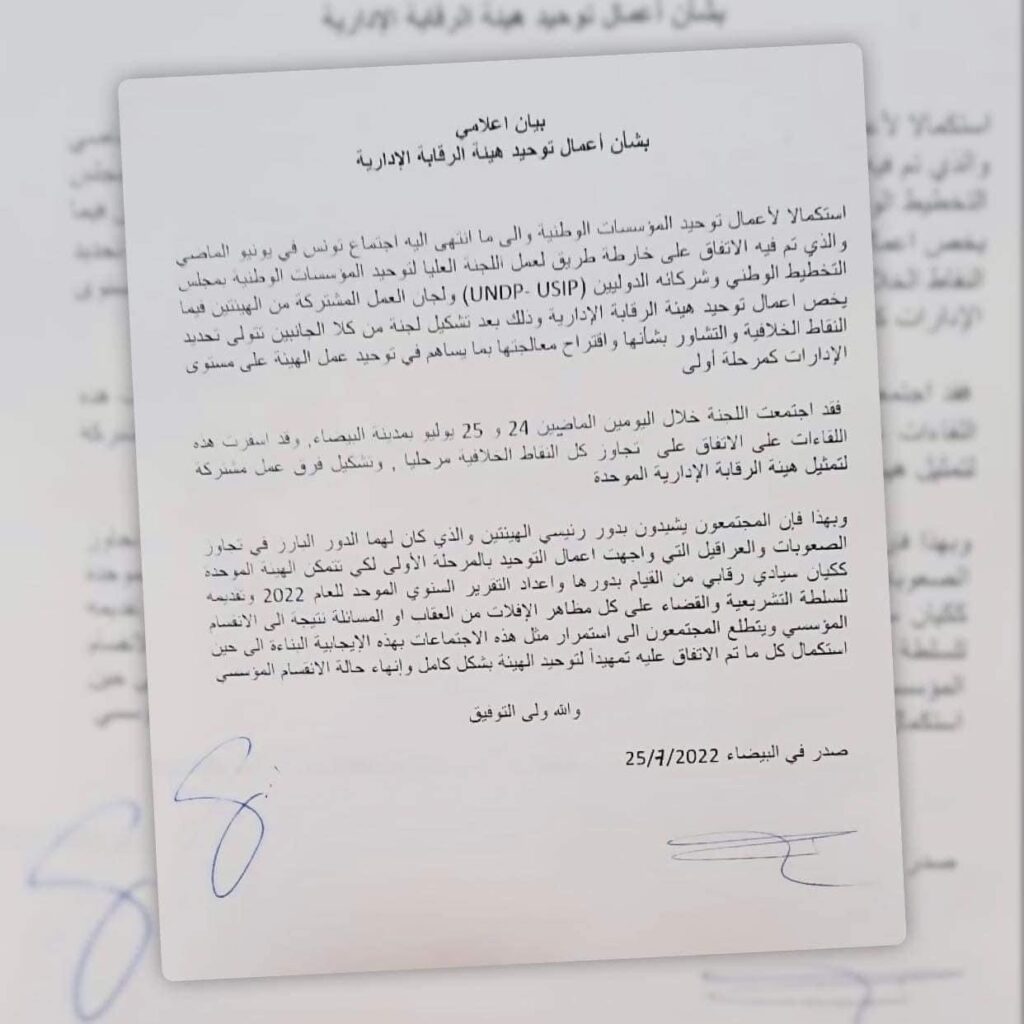 بيان اعلامي
بشأن أعمال توحيد هيئة الرقابة الإدارية
استكمالا لأعمال توحيد المؤسسات الوطنية والى ما انتهى اليه اجتماع تونس في يونيو الماضي
والذي تم فيه الاتفاق على خارطة طريق لعمل اللجنة العليا لتوحيد المؤسسات الوطنية بمجلس
التخطيط الوطني وشركائه الدوليين (UNDP- USIP) ولجان العمل المشتركة من الهيئتين فيما
يخص اعمال توحيد هيئة الرقابة الإدارية وذلك بعد تشكيل لجنة من كلا الجانبين تتولى تحديد
النقاط الخلافية والتشاور بشأنها واقتراح معالجتها بما يساهم في توحيد عمل الهيئة على مستوى
الإدارات كمرحلة أولى
فقد اجتمعت اللجنة خلال اليومين الماضيين 24 و 25 يوليو بمدينة البيضاء, وقد اسفرت هذه
اللقاءات على الاتفاق على تجاوز كل النقاط الخلافية مرحليا , وتشكيل فرق عمل مشتركة
لتمثيل هيئة الرقابة الإدارية الموحدة
وبهذا فإن المجتمعون يشيدون بدور رئيسي الهيئتين والذي كان لهما الدور البارز في تجاوز
الصعوبات والعراقيل التي واجهت اعمال التوحيد بالمرحلة الأولى لكي تتمكن الهيئة الموحدة
ككيان سيادي رقابي من القيام بدورها واعداد التقرير السنوي الموحد للعام 2022 وتقديمه
للسلطة التشريعية والقضاء على كل مظاهر الإفلات من العقاب او المسائلة نتيجة الى الانقسام
المؤسسي ويتطلع المجتمعون الى استمرار مثل هذه الاجتماعات بهذه الإيجابية البناءة الى حين
استكمال كل ما تم الاتفاق عليه تمهيداً لتوحيد الهيئة بشكل كامل وإنهاء حالة الانقسام المؤسسي
والله ولى التوفيق
صدر في البيضاء 25/7/2022